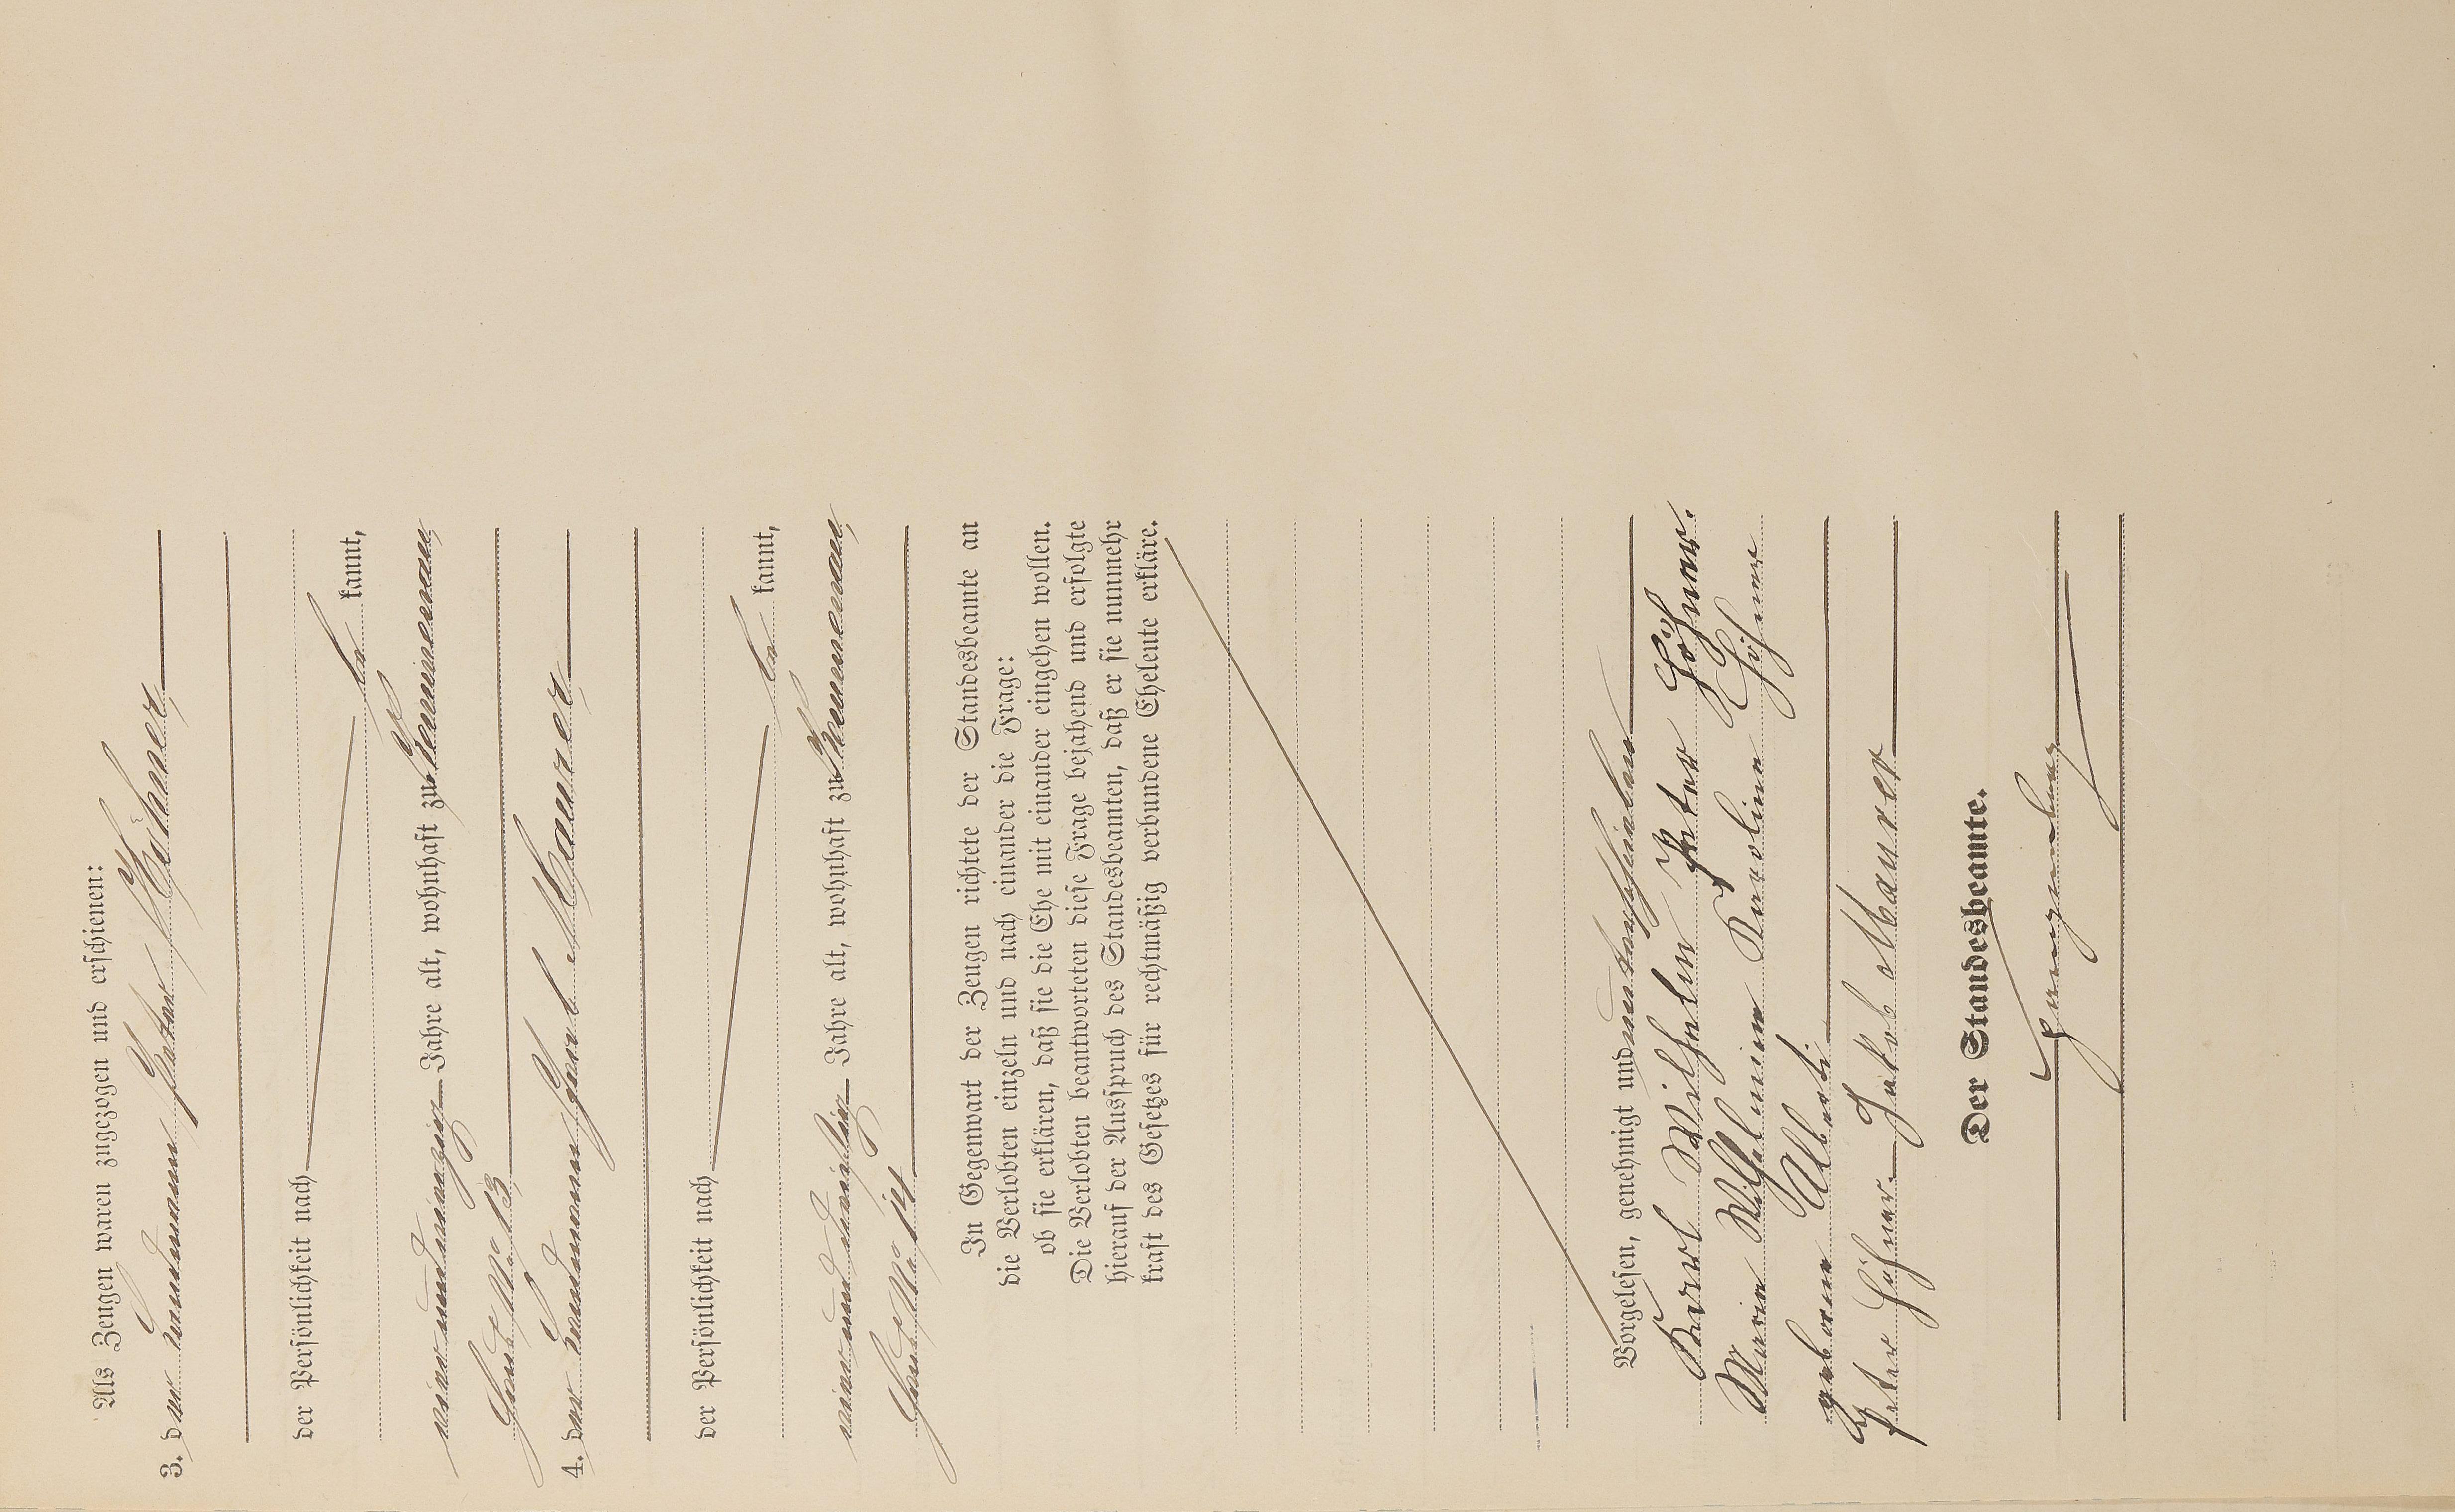 Als Zeugen waren zugezogen und erschienen:
3. der Landmann Peter Höhner,
der Persönlichkeit nach
be kannt,
vier und zwanzig Jahre alt, wohnhaft zu Hammerau,
Haus No 13.
4. der Landmann Jacob Maurer,
der Persönlichkeit nach
be kannt,
vier und dreißig Jahre alt, wohnhaft zu
Haus No 14.
In Gegenwart der Zeugen richtete der Standesbeamte an
die Verlobten einzeln und nach einander die Frage:
ob sie erklären, daß sie die Ehe mit einander eingehen wollen.
Die Verlobten beantworteten diese Frage bejahend und erfolgte
hierauf der Ausspruch des Standesbeamten, daß er sie nunmehr
kraft des Gesetzes für rechtmäßig verbundene Eheleute erkläre.
Vorgelesen, genehmigt und unterschrieben
Karl Wilhelm Peter Höhner.
Maria Wilhelmine Karoline Höhner
geborene Alberti
Peter Höhner. Jakob Maurer
Der Standesbeamte.